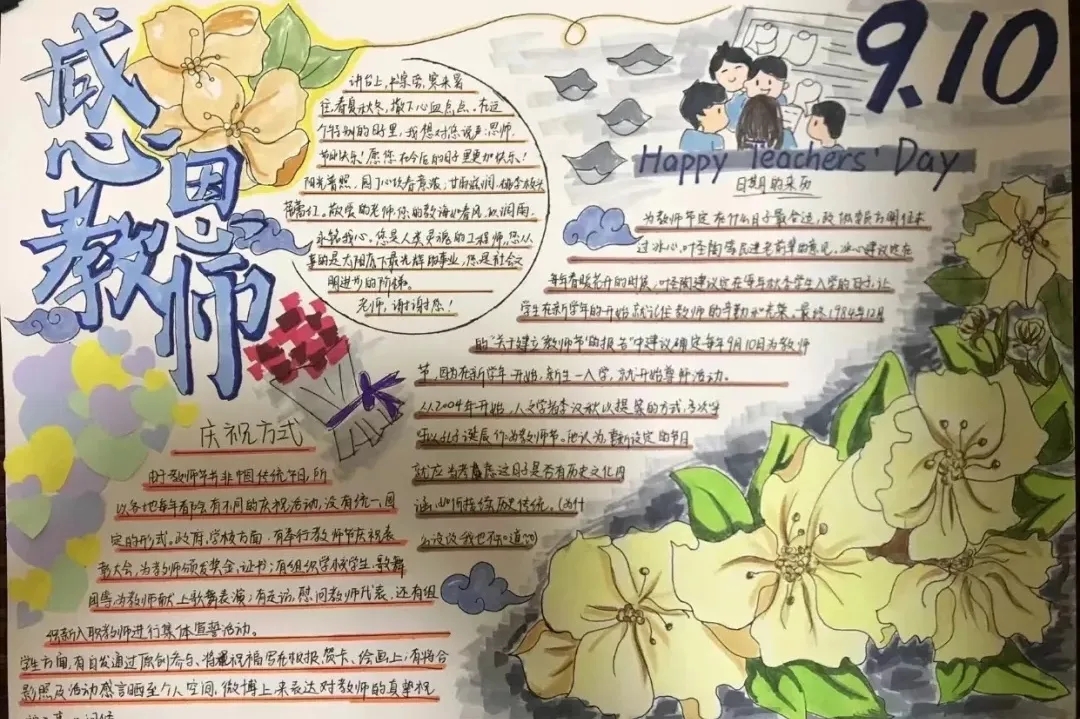 感恩教师
讲台上,书桌旁,寒来暑
往春夏秋冬,撒下心血点点。在这
个特别的日子里,我想对您说声:恩师,
节日快乐!愿您在今后的日子里更加快乐!
阳光普照,园丁心坎春意浓;甘雨滋润,桃李枝头
蓓蕾红。敬爱的老师,您的教诲如春风,似润雨,
永铭我心。您是人类灵魂的工程师,您从
事的是太阳底下最光辉的事业,您是社会文
明进步的阶梯。
老师,谢谢您!
9.10
Happy Teachers' Day
日期的来历
为教师节定在什么日子最合适,政协曾方明征求
过冰心、叶圣陶等民进老前辈的意见,冰心建议定在
每年春暖花开的时候,叶圣陶建议定在每年秋季学生入学的日子,让
学生在新学年的开始就记住教师的辛勤和光荣。最终1984年12月
的"关于建立教师节"的报告"中建议确定每年9月10日为教师
节,因为在新学年开始,新生一入学,就开始尊师活动。
从2004年开始,人文学者李汉秋以提案的方式,多次呼
吁以孔子诞辰作为教师节。他认为,重新设定的节日
就应当考虑这日子是否有历史文化内
涵,以所接续历史传统。(为什
么没改我也不知道哟)
庆祝方式
由于教师节并非中国传统节日,所
以各地每年都会有不同的庆祝活动,没有统一、固
定的形式。政府、学校方面,有奉行教师节庆祝表
彰大会,为教师颁发奖金、证书;有组织学校学生、歌舞
团等,为教师献上歌舞表演;有走访、慰问教师代表,还有组
织新入职教师进行集体宣誓活动。
学生方面,有自发通过原创参与,将祝福写在海报、贺卡、绘画上;有将合
影照及活动感言晒至个人空间、微博上来表达对教师的真挚祝